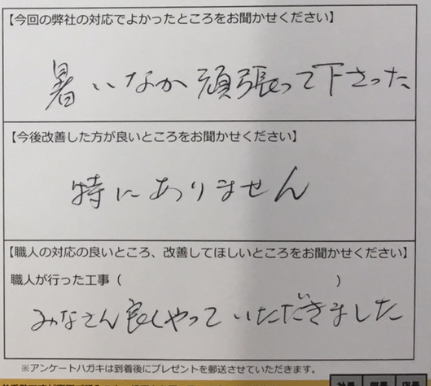 【今回の弊社の対応でよかったところをお聞かせください】
暑いなか頑張って下さった
【今後改善した方が良いところをお聞かせください】
特にありません
【職人の対応の良いところ、改善してほしいところをお聞かせください】
職人が行った工事（　　　　　　　　　　）
みなさん良くやっていただきました
※アンケートハガキは到着後にプレゼントを郵送させていただきます。